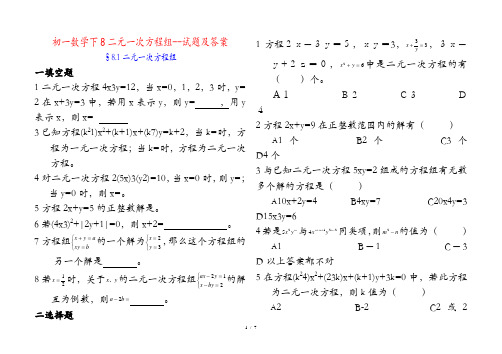 初一数学下8二元一次方程组--试题及答案
§8.1二元一次方程组
一填空题
1二元一次方程4x3y=12，当x=0，1，2，3时，y=
2在x+3y=3中，若用x表示y，则y=      ，用y
表示x，则x=
3已知方程(k²1)x²+(k+1)x+(k7)y=k+2，当k=时，方
程为一元一次方程；当k=时，方程为二元一次
方程。
4对二元一次方程2(5x)3(y2)=10，当x=0时，则y=；
当y=0时，则x=。
5方程2x+y=5的正整数解是。
6若(4x3)²+|2y+1|=0，则x+2=            。
7方程组{x+y=a xy=b的一个解为{x=2 y=3，那么这个方程组的
另一个解是      。
8若x=1/2时，关于x、y的二元一次方程组{ax-2y=1 x-by=2的解
互为倒数，则a-2b=      。
二选择题
1方程2x－3y=5，xy=3，x+3/y=3，3x－
y+2z=0，x²+y=6中是二元一次方程的有
（    ）个。
A 1      B 2      C 3      D
4
2方程2x+y=9在正整数范围内的解有（      ）
A1个      B2个      C3个
D4个
3与已知二元一次方程5xy=2组成的方程组有无数
多个解的方程是（      ）
A10x+2y=4      B4xy=7      C20x4y=3
D15x3y=6
的值为（      ）
A1      B－1      C－3
D以上答案都不对
5在方程(k²4)x²+(23k)x+(k+1)y+3k=0中，若此方程
为二元一次方程，则k值为（      ）
A2      B-2      C2或2
1 / 7